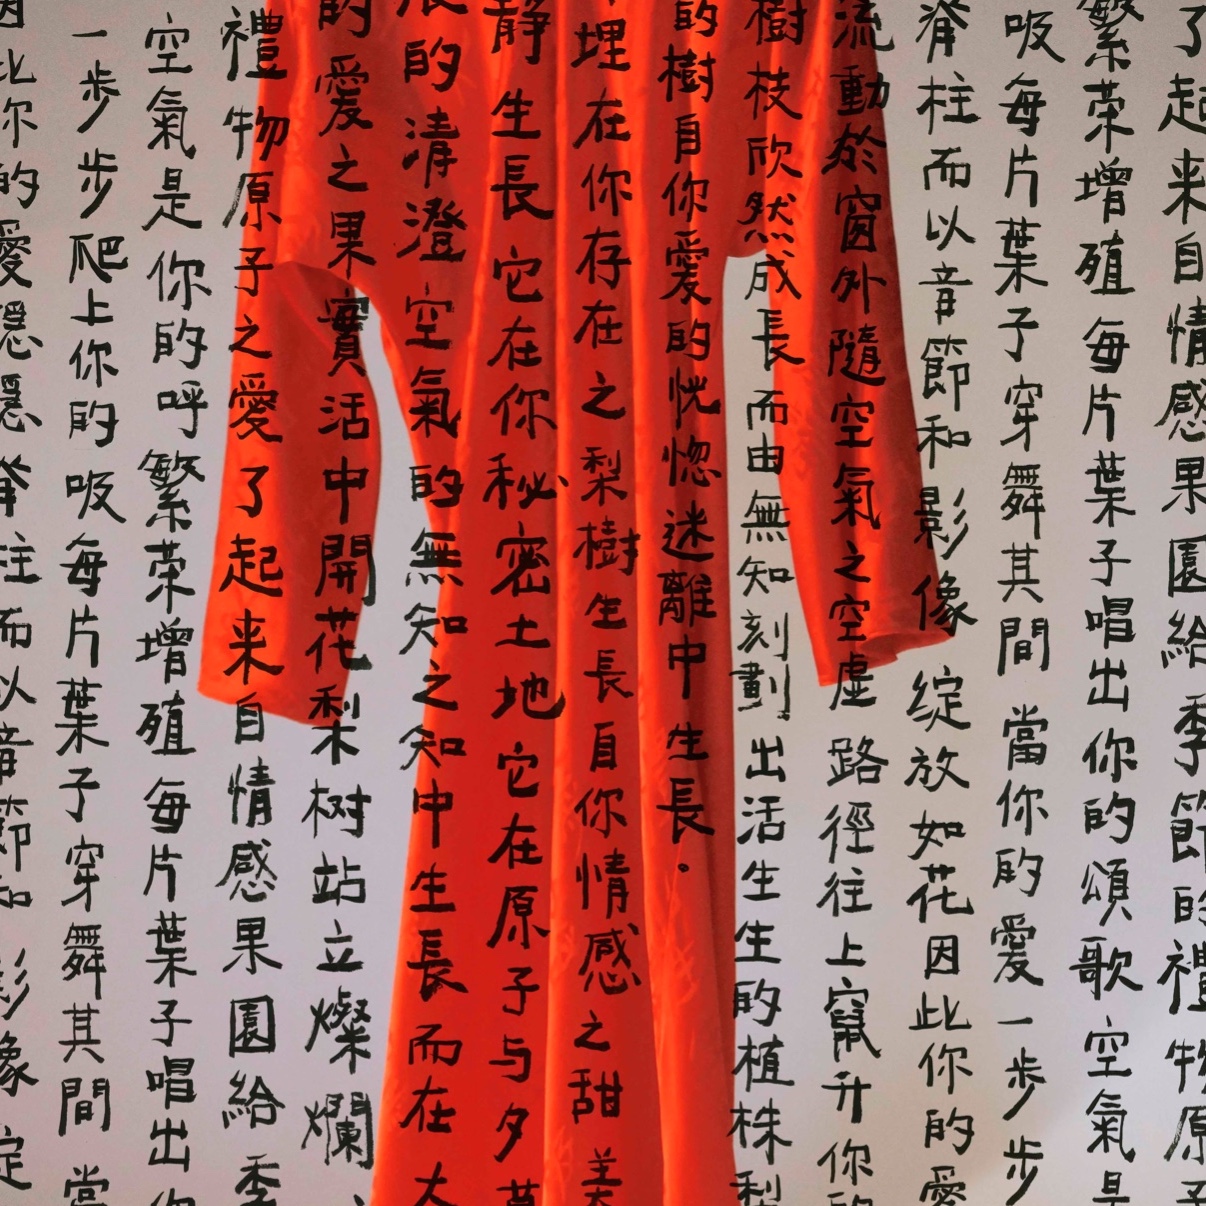 了起来自情感果園給季節的禮物原子
繁荣增殖每片葉子唱出你的頌歌空氣是
吸每片葉子穿舞其間當你的愛一步步
脊柱而以音節和影像綻放如花因此你的愛
流動於窗外隨空氣之空虛路徑往上竄升你的
樹枝欣然成長而由無知刻劃出活生生的植株梨
的樹自你愛的恍惚迷離中生長.
埋在你存在之梨樹生長自你情感之甜美
静生長它在你秘密土地它在原子与夕
的清澄空氣的無知之知中生長而在大
的愛之果實活中開花梨树站立燦爛、
禮物原子之愛了起来自情感果園給季
空氣是你的呼繁荣增殖每片葉子唱出你
一步步爬上你的吸每片葉子穿舞其間當
因此你的愛隱隱脊柱而以音節和影像綻